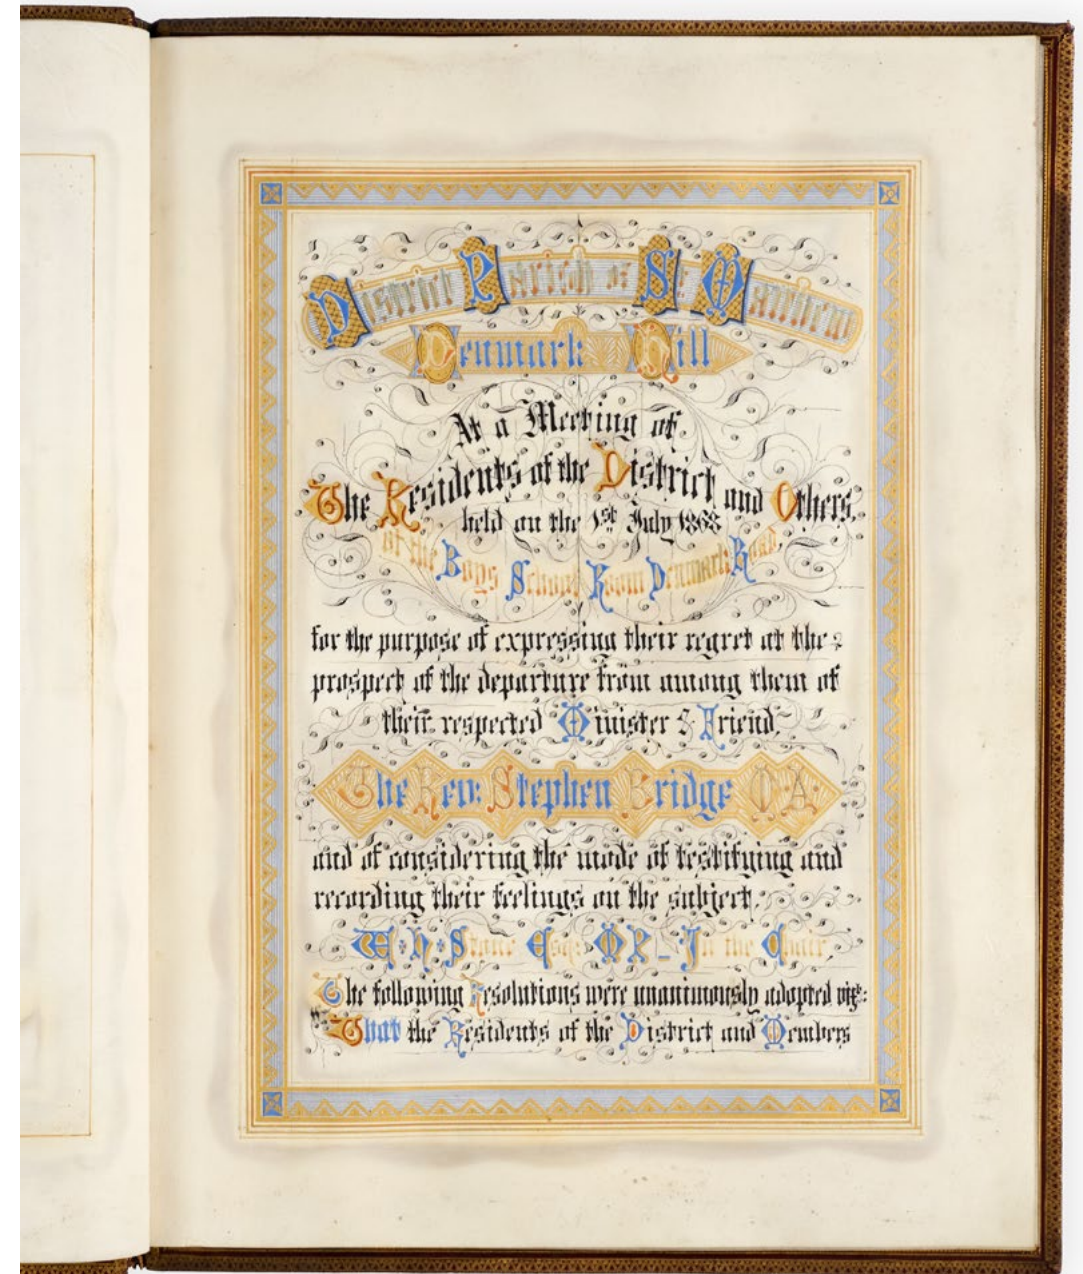 District Parish of St Matthew
Denmark Hill
At a Meeting of
The Residents of the District and Others,
held on the 1st July 1868
at the Boys School Room Denmark Road
for the purpose of expressing their regret at the
prospect of the departure from among them of
their respected Minister & Friend,
The Rev: Stephen Bridge M A
and of considering the mode of testifying and
recording their feelings on the subject,
W. H. Stone Esq: M P - In the Chair,
The following Resolutions were unanimously adopted viz:
That the Residents of the District and Members